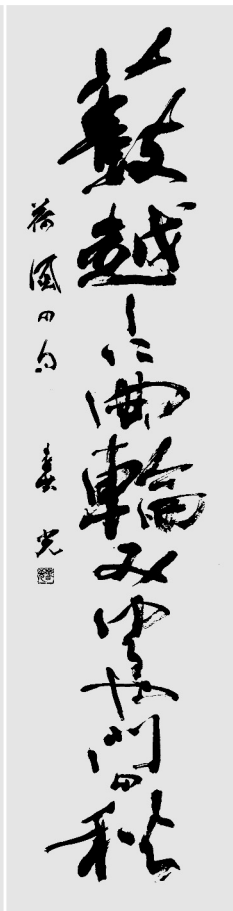 藪越しに曲輪みゆるや門の秋
荷風の句